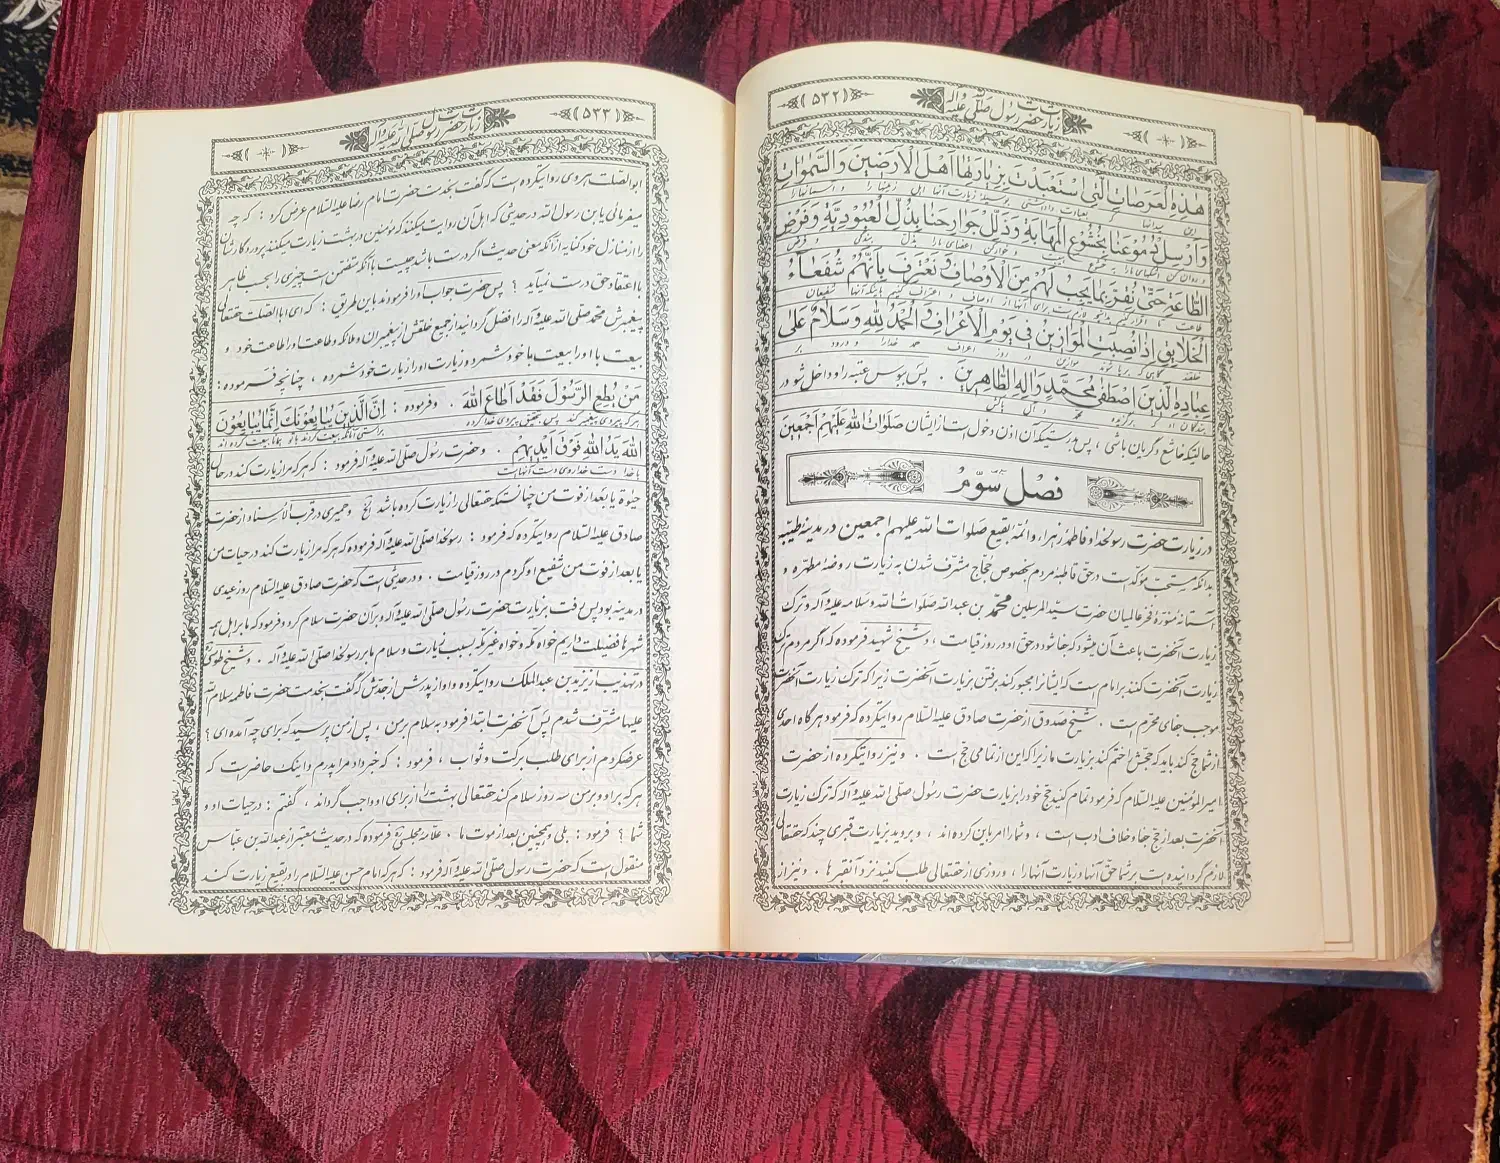 (۵۳۲)
زیارت حضرت رسول صلی الله علیه و آله
هٰذِهِ الْعَرَصاتِ الَّتی اسْتَعْبَدْتَ بِزِیارَتِها اَهْلَ الْاَرَضینَ وَالسَّمٰواتِ
وَاَرْسِلْ دُمُوعَنا بِخُشُوعِ الْمَهابَةِ وَذَلِّلْ جَوارِحَنا بِذُلِّ الْعُبُودِیَّةِ وَفَرْضِ
الطّاعَةِ حَتّی نُقِرَّ بِما یَجِبُ لَهُمْ مِنَ الْاَوْصافِ وَنَعْتَرِفَ بِاَنَّهُمْ شُفَعآءُ
الْخَلایِقِ اِذا نُصِبَتِ الْمَوازینُ فی یَوْمِ الْاَعْرافِ وَالْحَمْدُ لِلّهِ وَسَلامٌ عَلی
عِبادِهِ الَّذینَ اصْطَفی مُحَمَّدٍ وَآلِهِ الطّاهِرینَ . پس ببوس عتبه را و داخل شو در
حالتیکه خاشع و گریان باشی ، پس بدرستیکه آن اذن دخول است از ایشان صَلَواتُ اللهِ عَلَیْهِمْ اَجْمَعینَ
فصل سوّم
در زیارت حضرت رسولخدا و فاطمه زهرا و ائمّه بقیع صلوات الله علیهم اجمعین در مدینه طیّبه
بدانکه مستحبّ مؤکّد است در حقّ قاطبه مردم بخصوص حجّاج مشرّف شدن به زیارت روضه مطهّره و
آستانه منوّره فخر عالمیان حضرت سیّد المرسلین محمّد بن عبدالله صلوات الله و سلامه علیه و آله و ترک
زیارت آنحضرت باعث آن میشود که جفا شود در حقّ او در روز قیامت ، و شیخ شهید فرموده که اگر مردم ترک
زیارت آنحضرت کنند بر امام است که ایشانرا مجبور کند برفتن بزیارت آنحضرت زیرا که ترک زیارت آنحضرت
موجب جفای محرّم است . شیخ صدوق از حضرت صادق علیه السّلام روایتکرده که فرمود هرگاه احدی
از شما حجّ کند باید که حجّش را ختم کند بزیارت ما زیرا که این از تمامی حجّ است . و نیز روایتکرده از حضرت
امیر المؤمنین علیه السّلام که فرمود تمام کنید حجّ خود را بزیارت حضرت رسول صلّی الله علیه و آله که ترک زیارت
آنحضرت بعد از حجّ جفا و خلاف ادب است ، و شما را امر باین کرده‌اند ، و بروید بزیارت قبری چند که حقتعالی
لازم گردانیده است بر شما حقّ آنها و زیارت آنها را ، و روزی از حقتعالی طلب کنید نزد آنقبرها . و نیز از
(۵۳۳)
زیارت حضرت رسول صلی الله علیه و آله
ابوالصلت هروی روایتکرده است که گفت بخدمت حضرت امام رضا علیه السّلام عرض کرد : که چه
میفرمائی یابن رسول الله در حدیثی که اهل آن روایت میکنند که مؤمنین در بهشت زیارت میکنند پروردگارشان
را از منازل خود کنایه از آنکه معنی حدیث اگر درست باشد چیست با آنکه متضمّن است چیزی را بحسب ظاهر
با اعتقاد حق درست نمیآید ؟ پس حضرت جواب او را فرمودند باین طریق : که ای ابا الصلت حقتعالی
پیغمبرش محمّد صلی الله علیه و آله را افضل گردانید از جمیع خلقش از پیغمبران و ملائکه و طاعت او را طاعت خود و
بیعت با او را بیعت با خود شمرده و زیارت او را زیارت خود شمرده ، چنانچه فرموده :
مَنْ یُطِعِ الرَّسُولَ فَقَدْ اَطاعَ اللهَ . و فرموده : اِنَّ الَّذینَ یُبایِعُونَکَ اِنَّما یُبایِعُونَ
هر که پیروی پیغمبر کند پس بتحقیق پیروی خدا کرده
اللهَ یَدُ اللهِ فَوْقَ اَیْدیهِمْ . و حضرت رسول صلّی الله علیه و آله فرمود : که هر که مرا زیارت کند در حال
با خدا دست خدا روی دست آنهاست
حیوة یا بعد از فوت من چنانستکه حقتعالی را زیارت کرده باشد الخ و حمیری در قرب الاسناد از حضرت
صادق علیه السّلام روایتکرده که فرمود : رسولخدا صلّی الله علیه و آله فرموده که هر که مرا زیارت کند در حیات من
یا بعد از فوت من شفیع او گردم در روز قیامت . و در حدیثی است که حضرت صادق علیه السّلام روز عیدی
در مدینه بود پس رفت بزیارت حضرت رسول صلّی الله علیه و آله و بر آن حضرت سلام کرد و فرمود که ما بر اهل همه
شهرها فضیلت داریم خواه مکّه و خواه غیر مکّه بسبب زیارت و سلام ما بر رسولخدا صلّی الله علیه و آله . و شیخ طوسی
در تهذیب از یزید بن عبدالملک روایتکرده و او از پدرش از جدّش که گفت بخدمت حضرت فاطمه سلام الله
علیها مشرّف شدم پس آنحضرت ابتدا فرمود بسلام بر من ، پس از من پرسید که برای چه آمده‌ای ؟
عرضکردم از برای طلب برکت و ثواب ، فرمود : که خبر داد مرا پدرم و اینک حاضر است که
هر که بر او و بر من سه روز سلام کند حقتعالی بهشت از برای او واجب گرداند ، گفتم : در حیات او و
شما ؟ فرمود : بلی و همچنین بعد از موت ما . علاّمه مجلسی فرموده که در حدیث معتبر از عبدالله بن عباس
منقول است که حضرت رسول صلّی الله علیه و آله فرمود : که هر که امام حسن علیه السّلام را در بقیع زیارت کند